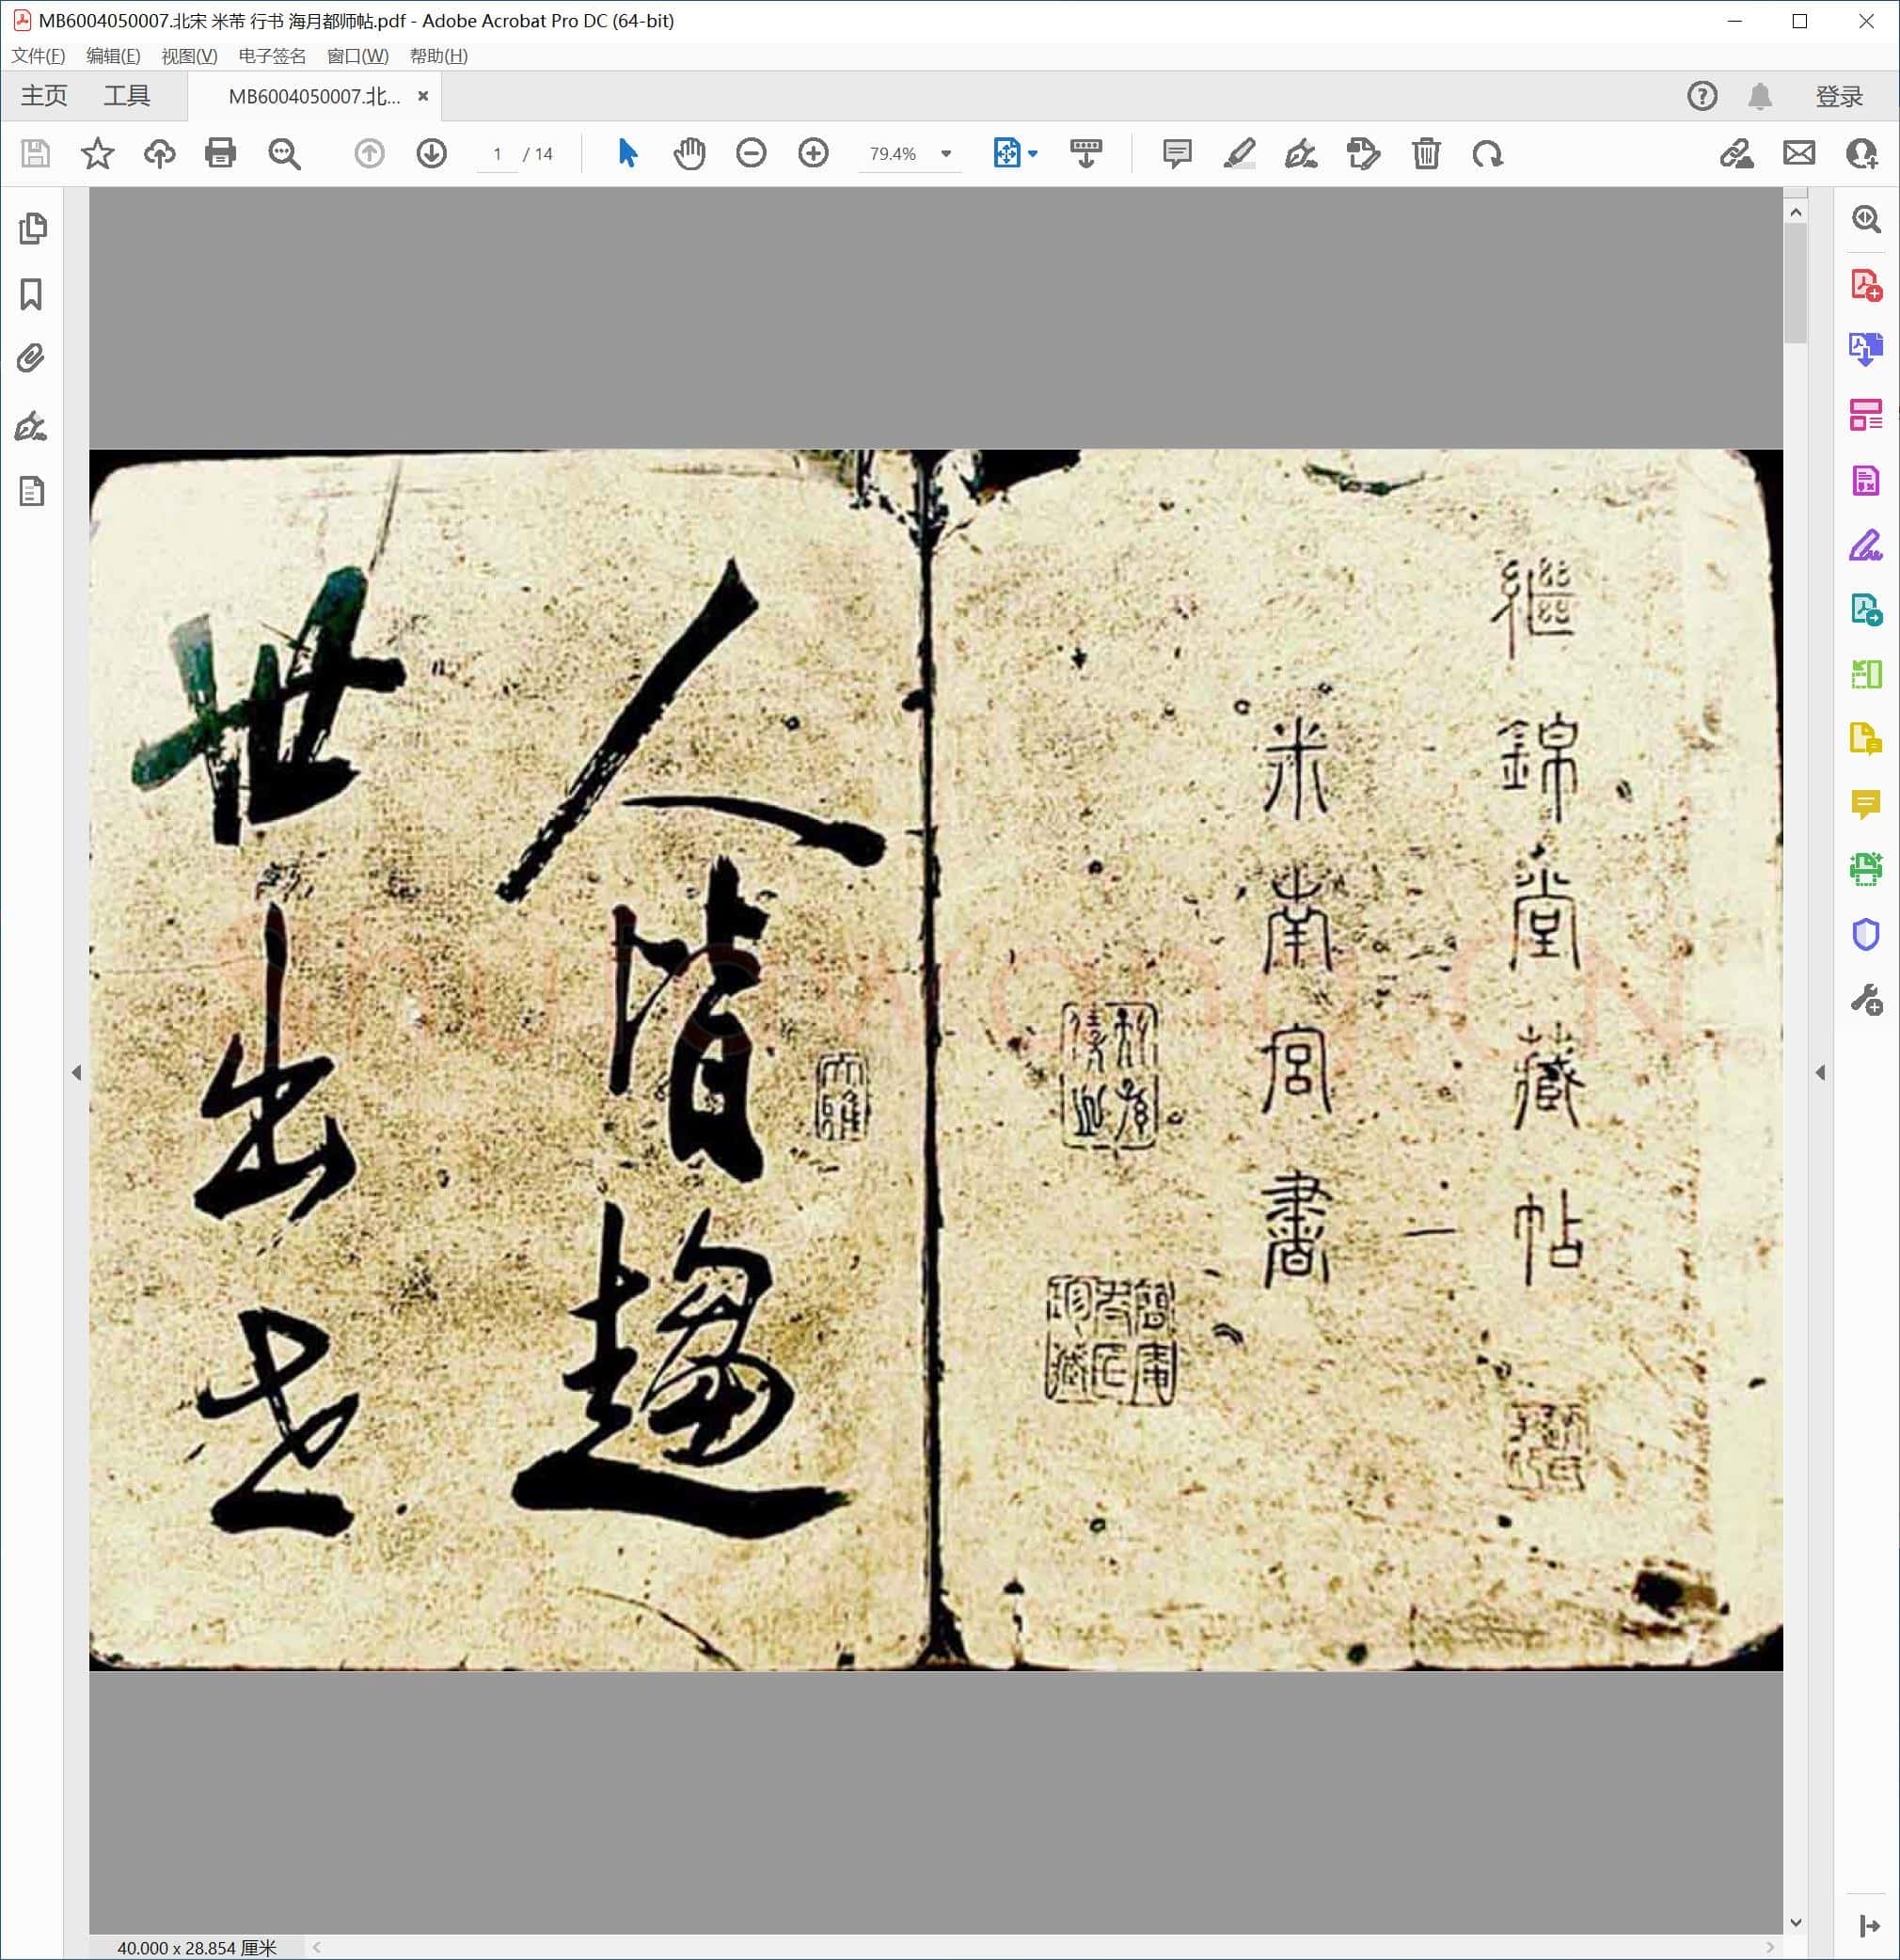 MB6004050007.北宋 米芾 行书 海月都师帖.pdf - Adobe Acrobat Pro DC (64-bit)
文件(F) 编辑(E) 视图(V) 电子签名 窗口(W) 帮助(H)
主页 工具 MB6004050007.北... 登录
1 / 14 79.4%
繼錦堂藏帖
一
米南宮書
大雅
人皆趨
世出世
40.000 x 28.854 厘米